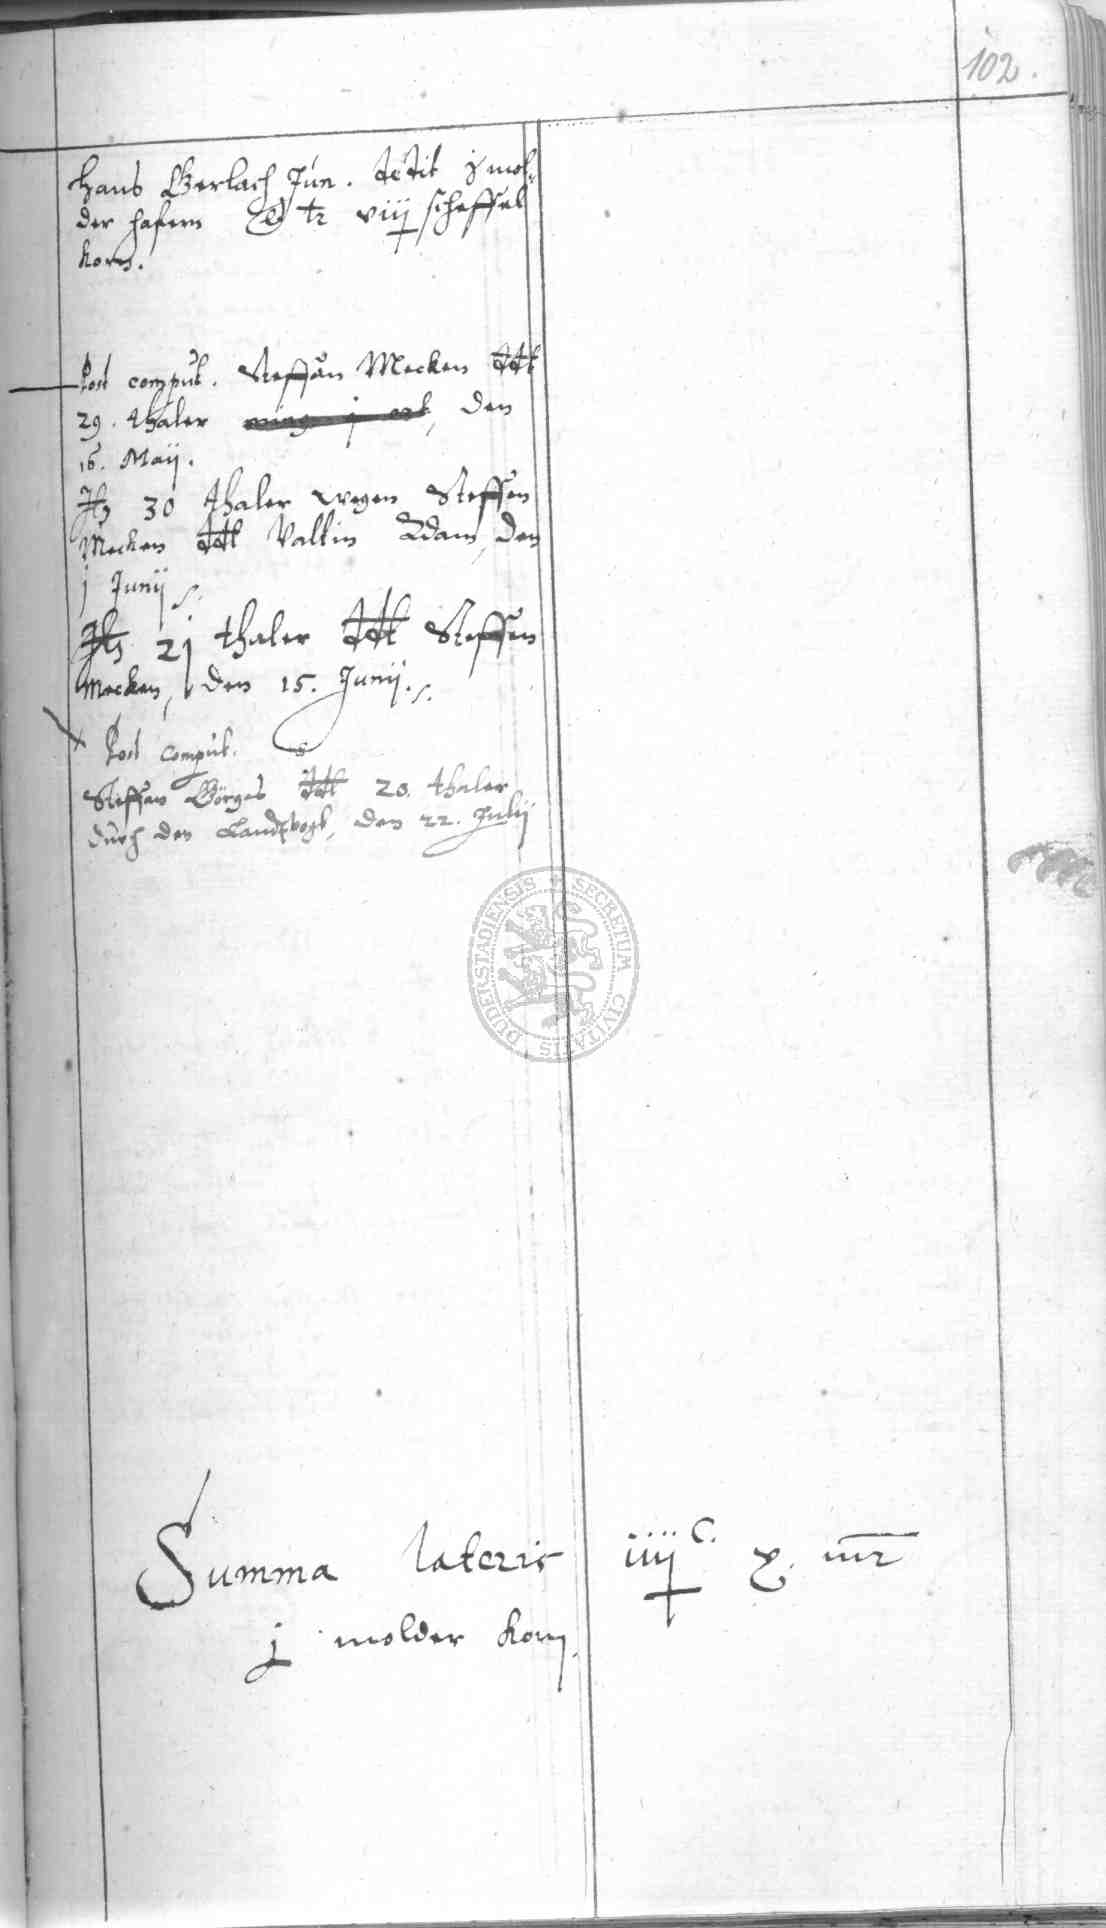 102.
Hans Gerlach Jun. dedit j mol-
der hafern viij scheffel
korn.
Post comput. Steffan Mecken ddt
29. thaler den
16. Maij.
It 30 thaler wegen Steffen
Mecken ddt Valtin Adam, den
j Junij
It 2j thaler ddt Steffen
Mecken, den 15. Junij.
Post comput.
Steffen Görges ddt 20. thaler
durch den Landtvogt, den 22. Julij
SECRETUM CIVITATIS DUDERSTADIENSIS
Summa lateris iiij C. x. mr
j molder korn.